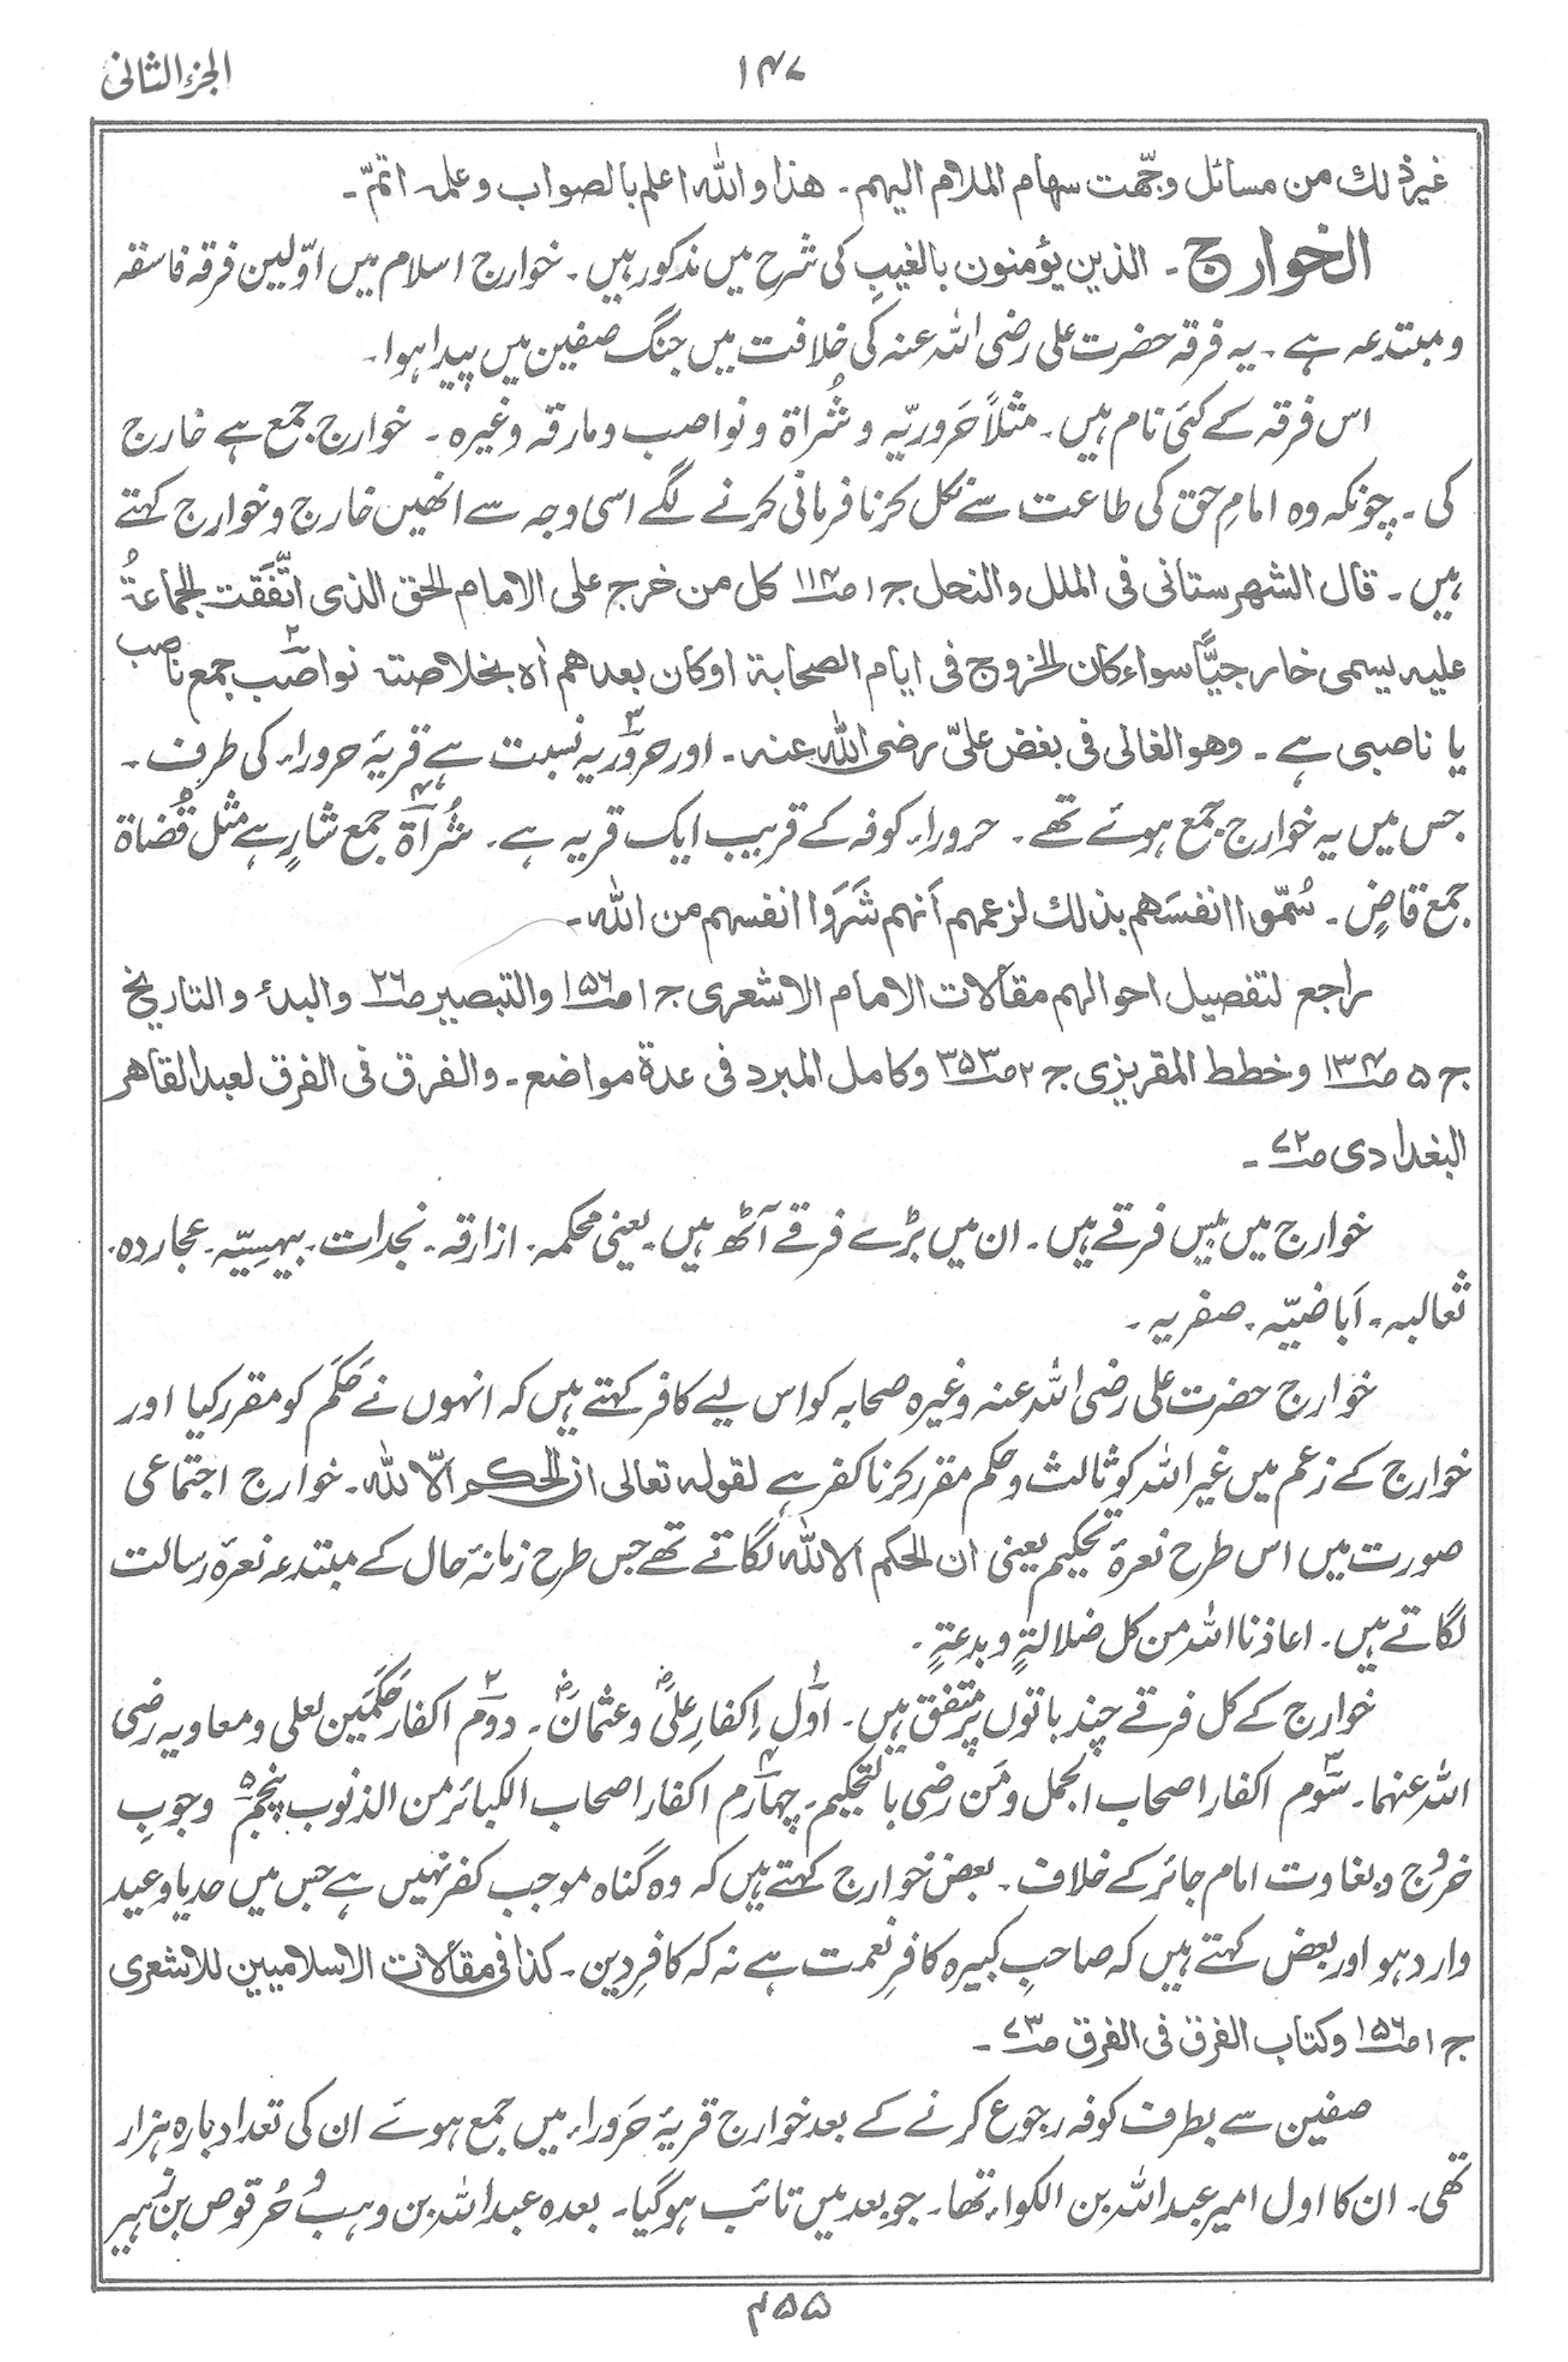 الجزء الثانی
۱۴۷
غیر ذلك من مسائل وجّھت سھام الملام الیھم ۔ ھذا واللہ اعلم بالصواب وعلمہ اتمّ ۔
الخوارج ۔ الذین یؤمنون بالغیبِ کی شرح میں مذکور ہیں ۔ خوارج اسلام میں اوّلین فرقہ فاسقہ
و مبتدعہ ہے ۔ یہ فرقہ حضرت علی رضی اللہ عنہ کی خلافت میں جنگ صفین میں پیدا ہوا ۔
اس فرقہ کے کئی نام ہیں ۔ مثلاً حَروریّہ و شُراۃ و نواصب و مارقہ وغیرہ ۔ خوارج جمع ہے خارج
کی ۔ چونکہ وہ امامِ حق کی طاعت سے نکل کر نافرمانی کرنے لگے اسی وجہ سے انھیں خارج و خوارج کہتے
ہیں ۔ قال الشھرستانی فی الملل والنحل ج ۱ ص ۱۱۴ کل من خرج علی الامام الحق الذی اتّفَقت الجماعۃُ
علیہ یسمی خارجیًّا سواء کان الخروج فی ایام الصحابۃ اوکان بعدھم اہ بخلاصتہ نواصب۲ جمع ناصب
یا ناصبی ہے ۔ وھو الغالی فی بغض علیّ رضی اللہ عنہ ۔ اور حروریہ۳ نسبت ہے قریۂ حروراء کی طرف ۔
جس میں یہ خوارج جمع ہوئے تھے ۔ حروراء کوفہ کے قریب ایک قریہ ہے ۔ شُراۃ۴ جمع شارٍ ہے مثل قُضاۃ
جمع قاضٍ ۔ سُمّوا انفسَھم بذلك لزعمھم اَنھم شَرَوا انفسھم من اللہ ۔
راجع لتفصیل احوالھم مقالات الامام الاشعری ج ۱ ص ۱۵۶ والتبصیر ص ۲۶ والبدء والتاریخ
ج ۵ ص ۱۳۴ وخطط المقریزی ج ۲ ص ۳۵۳ وکامل المبرد فی عدۃ مواضع ۔ والفرق فی الفرق لعبد القاھر
البغدادی ص ۷۲ ۔
خوارج میں بیس فرقے ہیں ۔ ان میں بڑے فرقے آٹھ ہیں ۔ یعنی محکمہ ۔ ازارقہ ۔ نجدات ۔ بیہسِیّہ ۔ عجاردہ ۔
ثعالبہ ۔ اَباضیّہ ۔ صفریہ ۔
خوارج حضرت علی رضی اللہ عنہ وغیرہ صحابہ کو اس لیے کافر کہتے ہیں کہ انہوں نے حَکَم کو مقرر کیا اور
خوارج کے زعم میں غیر اللہ کو ثالث و حکم مقرر کرنا کفر ہے لقولہ تعالی ان الحکم الّا للہ ۔ خوارج اجتماعی
صورت میں اس طرح نعرۂ تحکیم یعنی ان الحکم الا للہ لگاتے تھے جس طرح زمانۂ حال کے مبتدعہ نعرۂ رسالت
لگاتے ہیں ۔ اعاذنا اللہ من کل ضلالۃٍ و بدعۃٍ ۔
خوارج کے کل فرقے چند باتوں پر متفق ہیں ۔ اوّل۱ اِکفارِ علیؓ و عثمانؓ ۔ دوّم۲ اکفار حَکَمَین لعلی و معاویہ رضی
اللہ عنہما ۔ سوّم۳ اکفار اصحاب الجمل و مَن رضی بالتحکیم ۔ چہارم۴ اکفار اصحاب الکبائر من الذنوب پنجم۵ وجوبِ
خروج و بغاوت امام جائر کے خلاف ۔ بعض خوارج کہتے ہیں کہ وہ گناہ موجب کفر نہیں ہے جس میں حد یا وعید
وارد ہو اور بعض کہتے ہیں کہ صاحبِ کبیرہ کافرِ نعمت ہے نہ کہ کافرِ دین ۔ کذا فی مقالات الاسلامیین للاشعری
ج ۱ ص ۱۵۶ وکتاب الفرق فی الفرق ص ۷۳ ۔
صفین سے بطرف کوفہ رجوع کرنے کے بعد خوارج قریۂ حَروراء میں جمع ہوئے ان کی تعداد بارہ ہزار
تھی ۔ ان کا اول امیر عبد اللہ بن الکواء تھا ۔ جو بعد میں تائب ہو گیا ۔ بعدہ عبد اللہ بن وہب و حُرقوص بن زُہیر
۴۵۵